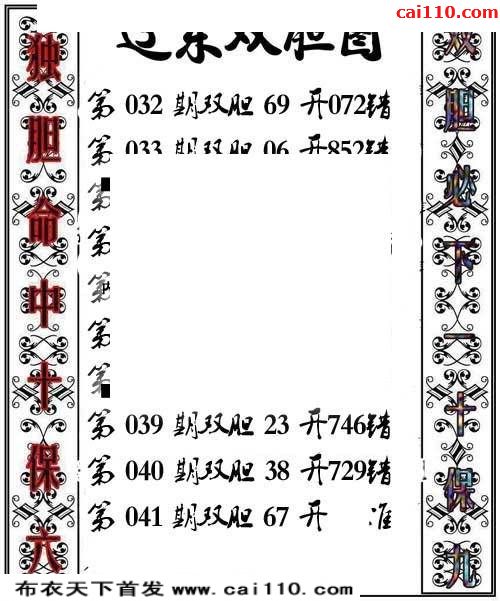 cai110.com
辽东双胆图
独胆命中十保六
双胆必下一十保九
第 032 期双胆 69 开072错
第 033 期双胆 06 开852错
第
第
第
第
第
第 039 期双胆 23 开746错
第 040 期双胆 38 开729错
第 041 期双胆 67 开 准
布衣天下首发 www.cai110.com